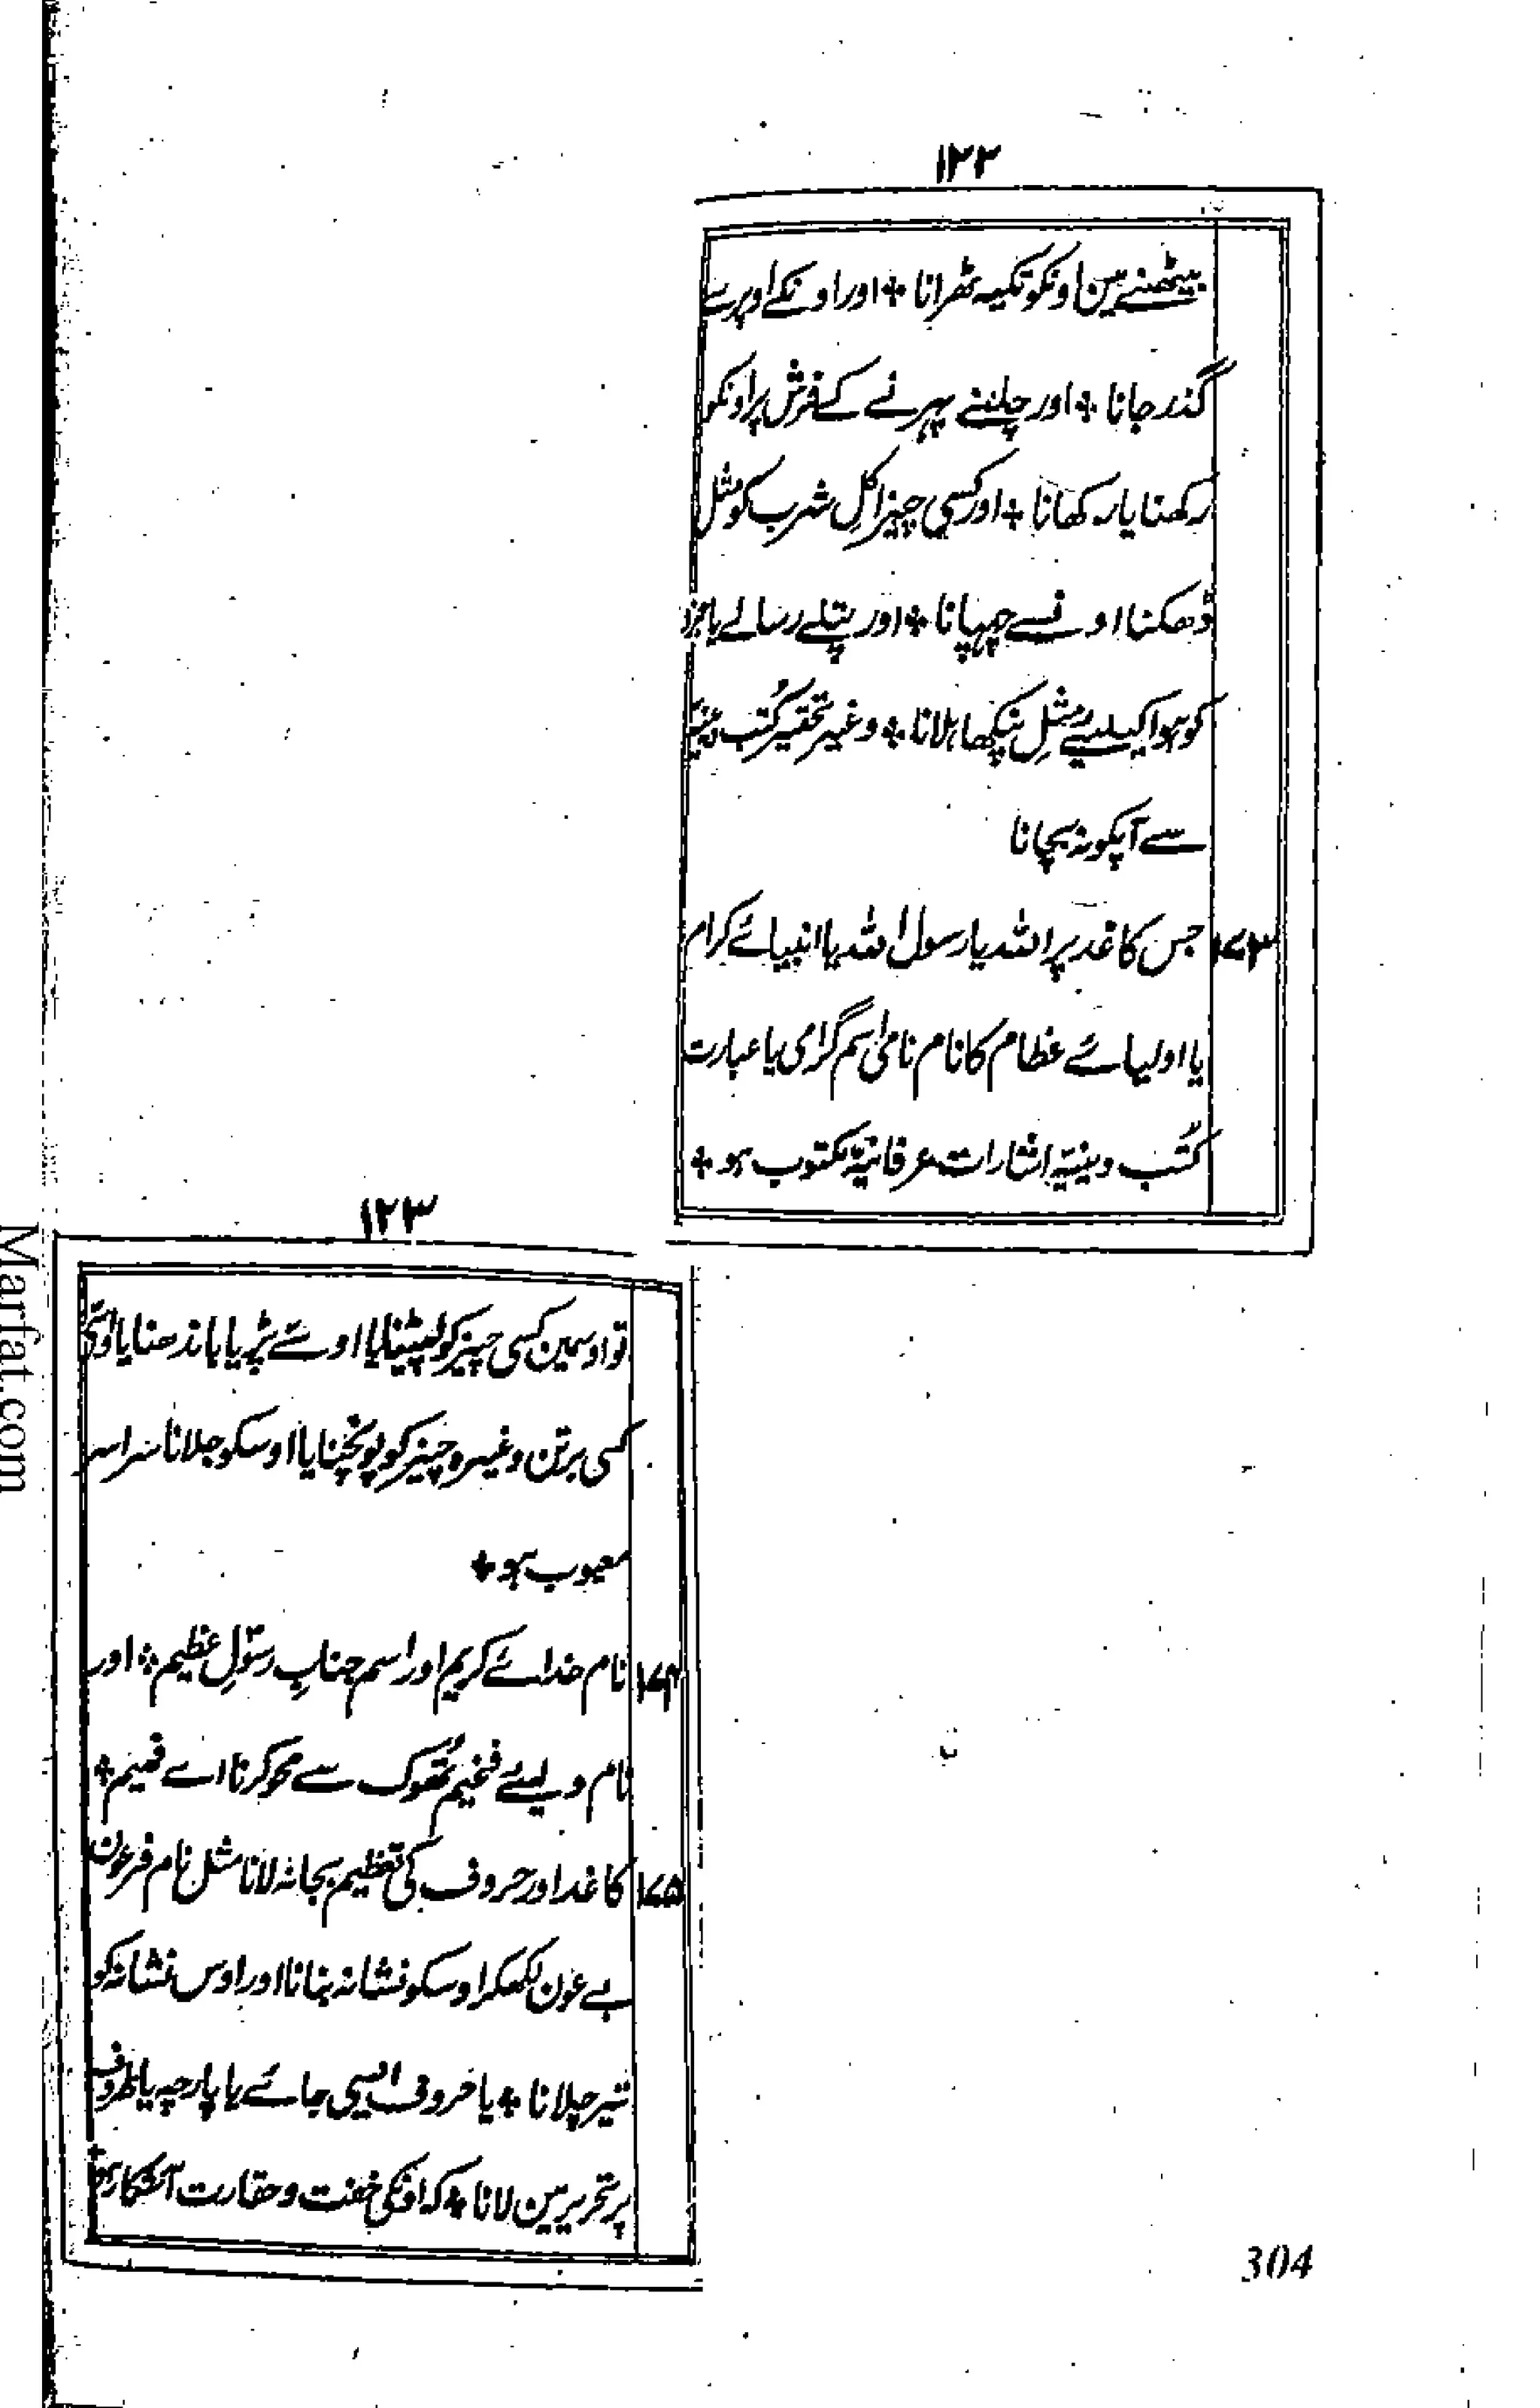 ۱۲۲
بیٹھنے مین اونکو تکیہ ٹھرانا ٭ اور اونکے اوپر سے
گذر جانا ٭ اور چلنے پہرنے کے فرش پر اونکو
رکھنا یا رکھانا ٭ اور کسی چیز اکل شرب کو مثل
ڈھکنا اونسے چہپانا ٭ اور پتلے رسالے یا جزو
کو ہوا کیلیے مثلِ پنکھا ہلانا ٭ وغیر تحقیرِ کُتب دینیّہ
سے آپکو نہ بچانا
۱۷۳ جس کاغذ پر اللہ یا رسول اللہ یا انبیائے کرام
یا اولیائے عظام کا نام نامی اسم گرامی یا عبارت
کُتب دینیّہ اشارات عرفانیّہ مکتوب ہو ٭
۱۲۳
تو اوسمین کسی چیز کو لپیٹنا یا اوسے پڑیا باندھنا یا اوسی
کسی برتن وغیرہ چیز کو پونچنا یا اوسکو جلانا سراسر
معیوب ہو ٭
۱۷۴ نام خدائے کریم اور اسم جنابِ رسولِ عظیم ٭ اور
نام ویسے فخیم تُھوک سے محو کرنا اے فہیم ٭
۱۷۵ کاغذ اور حروف کی تعظیم بجا نہ لانا مثل نام فرعون
بے عون لکھکر اوسکو نشانہ بنانا اور اوس نشانہ کو
تیر چلانا ٭ یا حروف ایسی جائے یا پارچہ یا ظروف
پر تحریر مین لانا ٭ کہ اونکی خفت و حقارت آشکار ہو ٭
304
Marfat.com